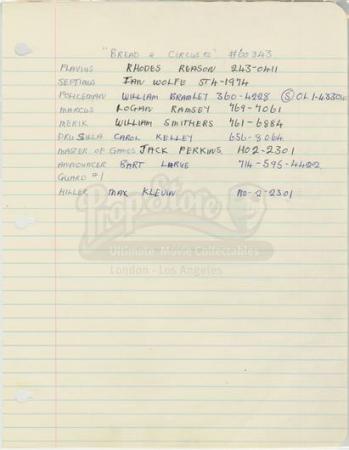 "BREAD & CIRCUSES" #60343
FLAVIUS RHODES REASON 243-0411
SEPTIMUS IAN WOLFE ST4-1974
POLICEMAN WILLIAM BRAMLEY 360-4228 (S) OL1-4330
MARCUS LOGAN RAMSEY 769-7061
MERIK WILLIAM SMITHERS 761-6884
DRUSILLA CAROL KELLEY 656-8064
MASTER OF GAMES JACK PERKINS HO2-2301
ANNOUNCER BART LARUE 714-595-4402
GUARD #1
HILLER MAX KLEVIN HO-2-2301
PropStore
Ultimate Movie Collectables
London - Los Angeles